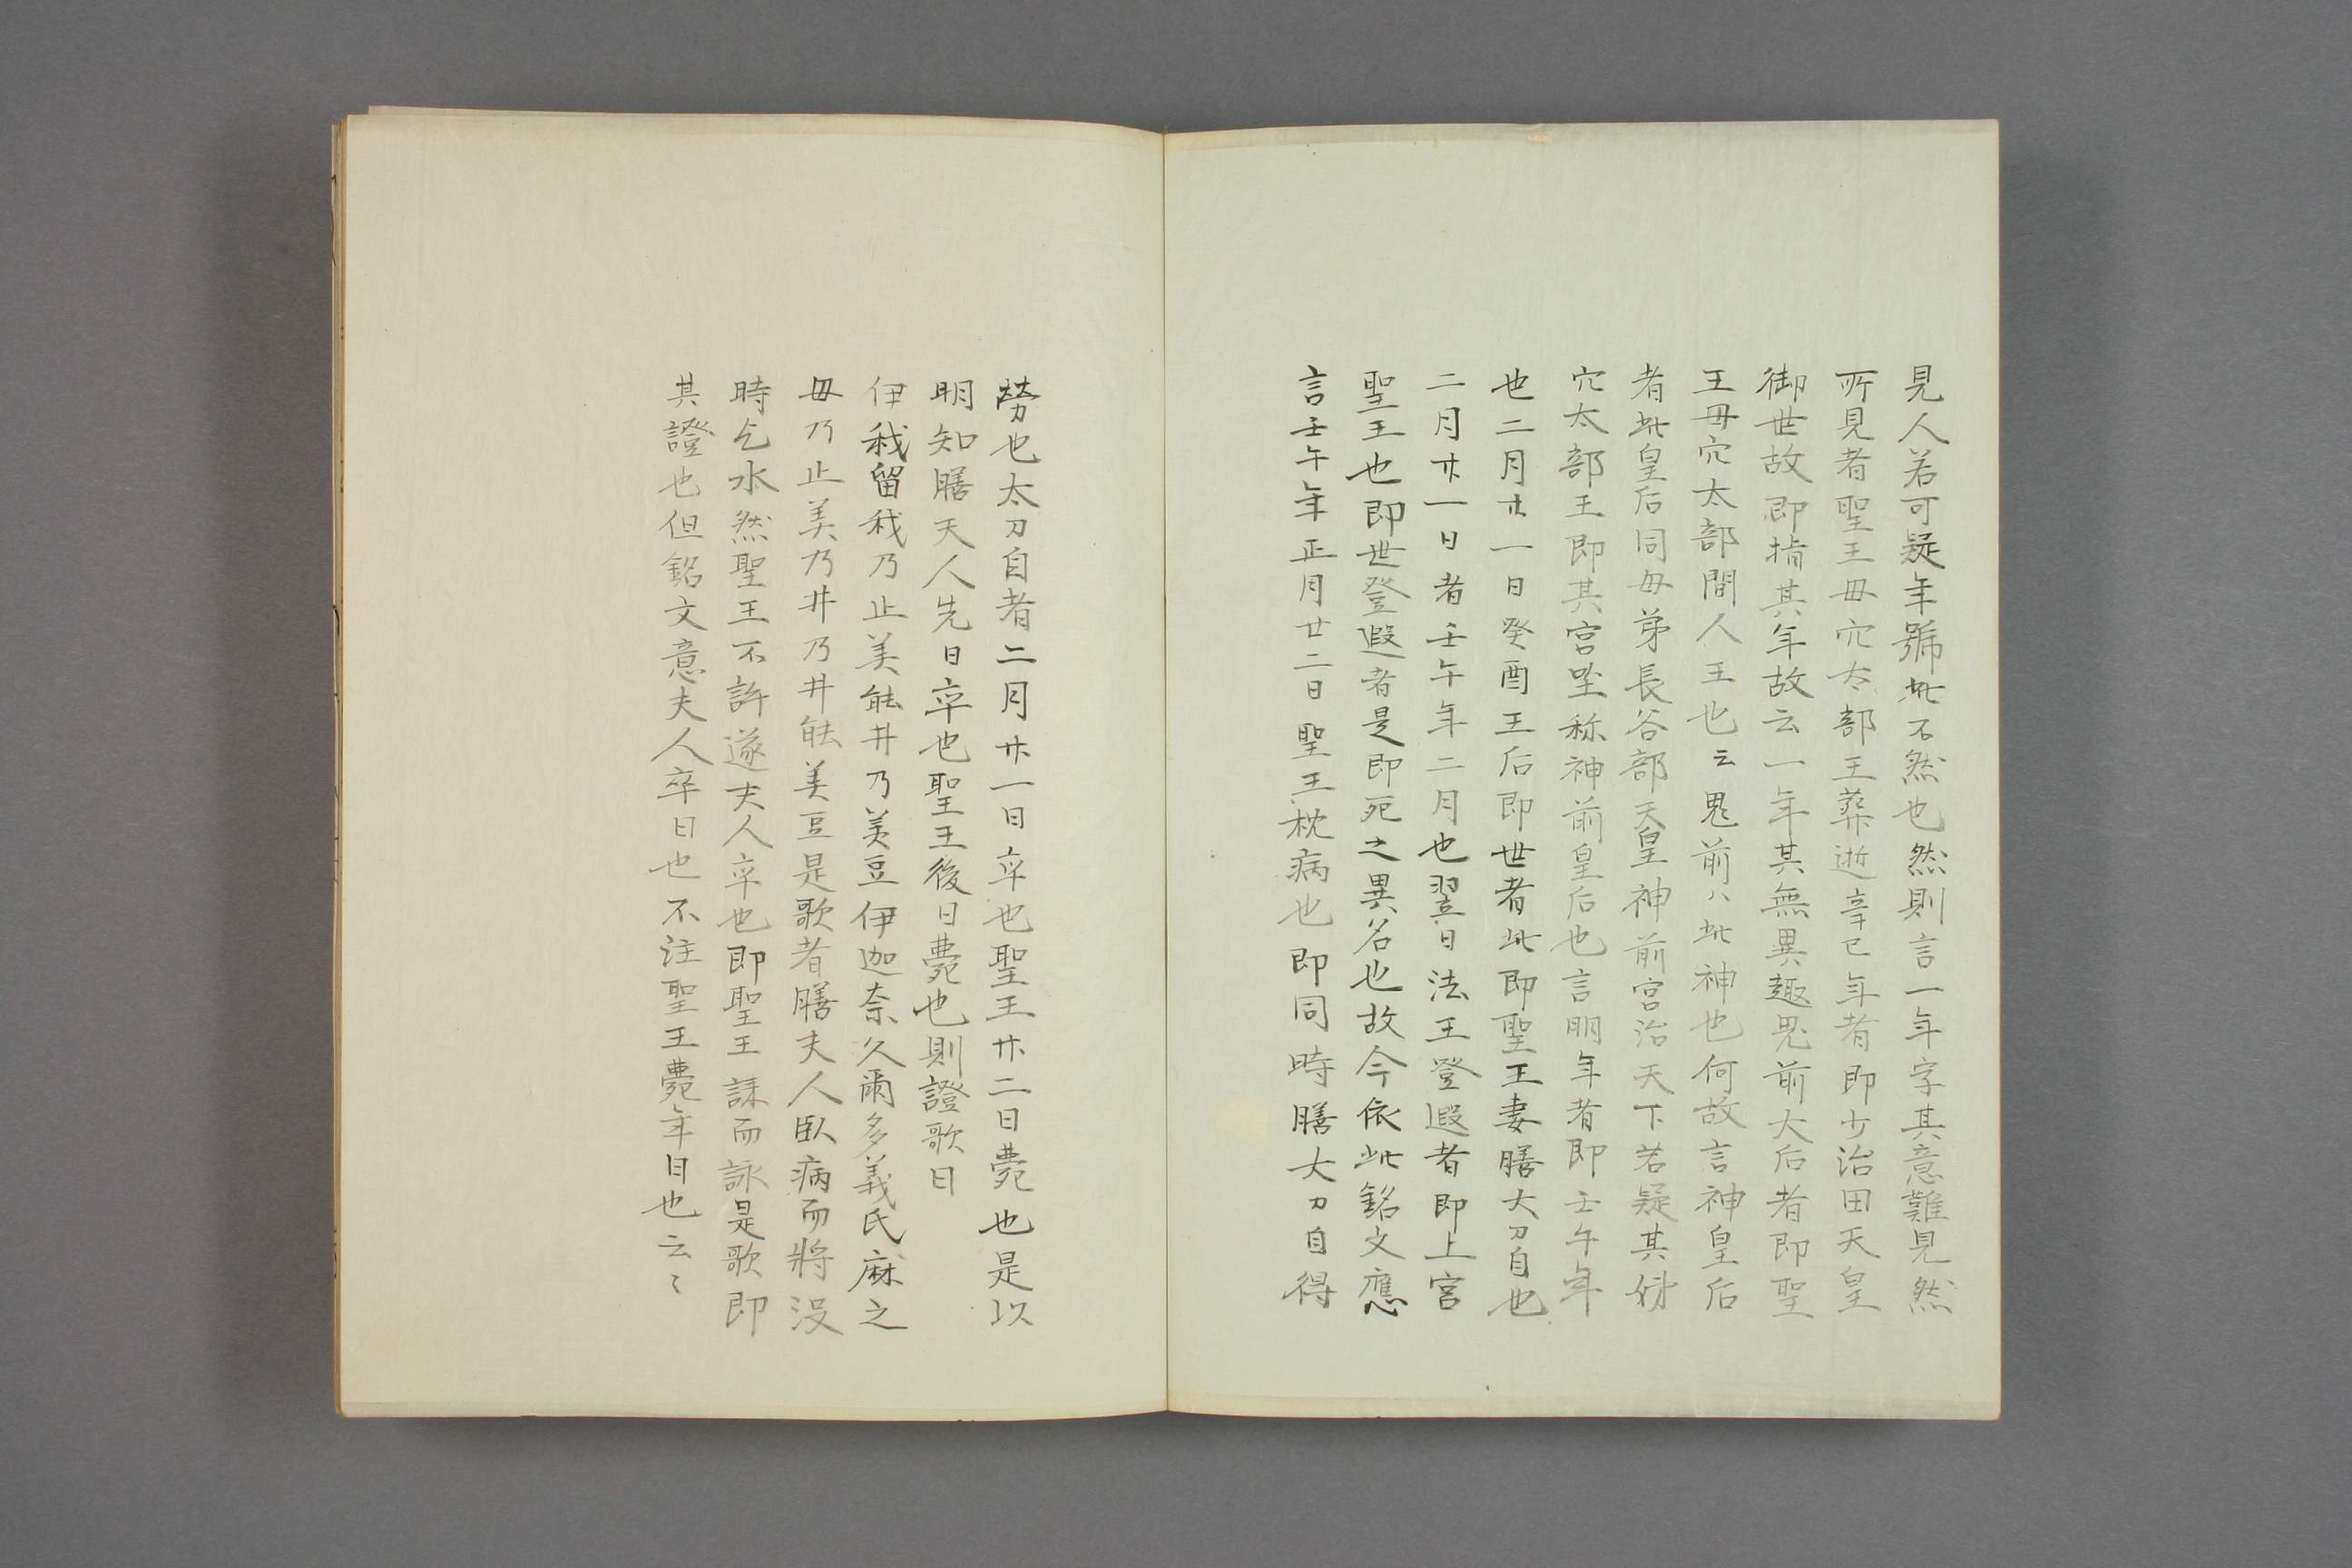 見人若可疑年號此不然也然則言一年字其意難見然
所見者聖王母穴太部王葬逝辛巳年者即少治田天皇
御世故即指其年故云一年其無異趣鬼前大后者即聖
王母穴太部間人王也云鬼前八此神也何故言神皇后
者此皇后同母弟長谷部天皇神前宮治天下若疑其姉
穴太部王即其宮坐称神前皇后也言明年者即壬午年
也二月廿一日癸酉王后即世者此即聖王妻膳大刀自也
二月廿一日者壬午年二月也翌日法王登遐者即上宮
聖王也即世登遐者是即死之異名也故今依此銘文應
言壬午年正月廿二日聖王枕病也即同時膳大刀自得
勞也太刀自者二月廿一日卒也聖王廿二日薨也是以
明知膳夫人先日卒也聖王後日薨也則證歌曰
伊我留我乃止美能井乃美豆伊迦奈久爾多義氏麻之
母乃止美乃井乃井能美豆是歌者膳夫人臥病而將沒
時乞水然聖王不許遂夫人卒也即聖王誄而詠是歌即
其證也但銘文意夫人卒日也不注聖王薨年日也云〻